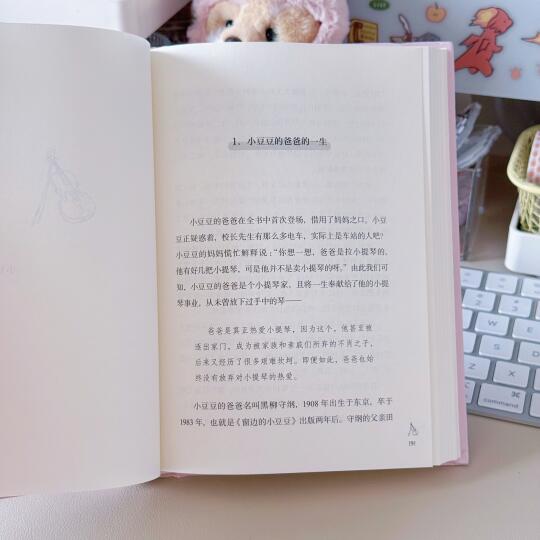 1、小豆豆的爸爸的一生
小豆豆的爸爸在全书中首次登场，借用了妈妈之口。小豆
豆正疑惑着，校长先生有那么多电车，实际上是车站的人吧？
小豆豆的妈妈慌忙解释说：“你想一想，爸爸是拉小提琴的，
他有好几把小提琴，可是他并不是卖小提琴的呀。”由此我们可
知，小豆豆的爸爸是个小提琴家，且将一生奉献给了他的小提
琴事业，从未曾放下过手中的琴——
爸爸是真正热爱小提琴，因为这个，他甚至被
逐出家门，成为被家族和亲戚们所弃的不肖之子，
后来又经历了很多艰难坎坷。即便如此，爸爸也始
终没有放弃对小提琴的热爱。
小豆豆的爸爸名叫黑柳守纲，1908 年出生于东京，卒于
1983 年，也就是《窗边的小豆豆》出版两年后。守纲的父亲田
191
command